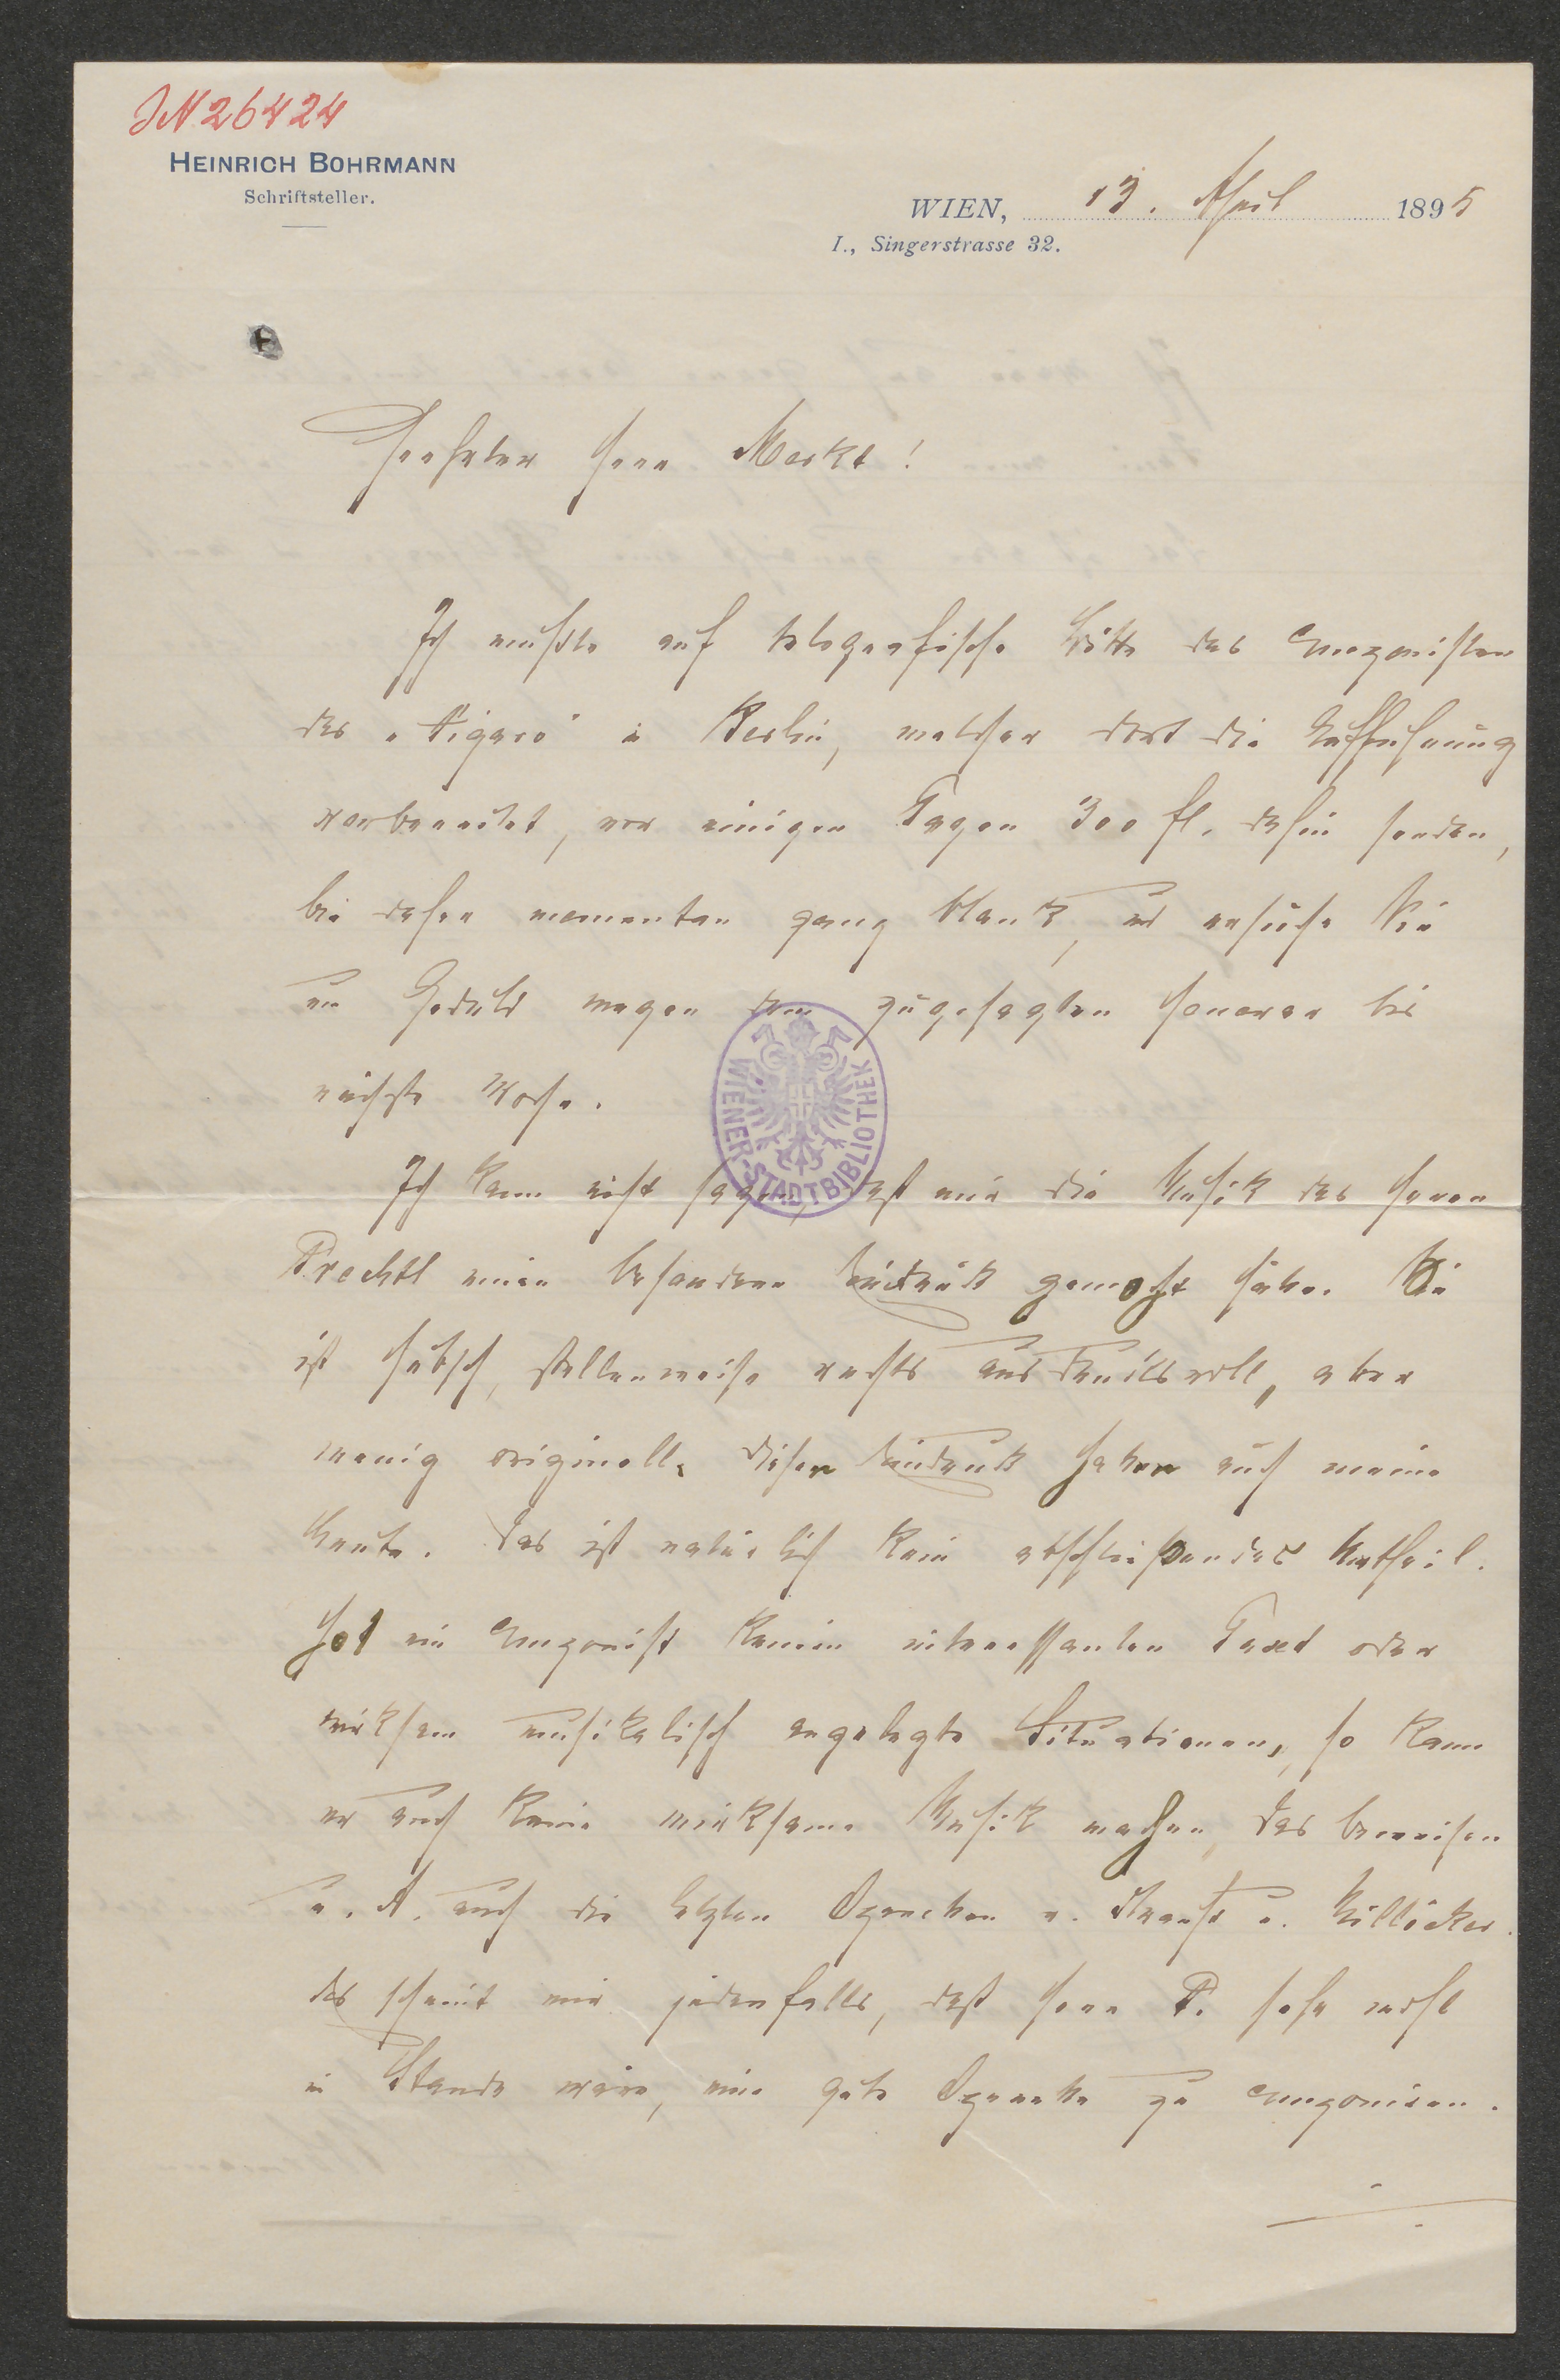 JN 26424
HEINRICH BOHRMANN
Schriftsteller.
WIEN, 13. April 1895
I., Singerstrasse 32.
Geehrter Herr Merkt!
Ich mußte auf telegrafische Bitte des Componisten
des „Figaro" in Berlin, welcher dort die Aufführung
vorbereitet, vor einigen Tagen 300 fl. dahin senden,
bin daher momentan ganz blank, und ersuche Sie
um Geduld wegen dem zugesagten Honorar bis
nächste Woche.
WIENER-STADTBIBLIOTHEK
Ich kann nicht sagen, daß mir die Musik des Herrn
Prechtl einen besonderen Eindruck gemacht hätte. Sie
ist hübsch, stellenweise recht ausdrucksvoll, aber
wenig originell. Diesen Eindruck haben auch meine
Leute. Das ist natürlich kein abschließendes Urtheil.
Hat ein Componist keinen interessanten Text oder
wirksam musikalisch angelegte Situationen, so kann
er auch keine wirksame Musik machen, das beweisen
u. A. auch die letzten Operetten v. Strauß u. Millöcker.
Es scheint mir jedenfalls, daß Herr P. sehr wohl
im Stande wäre, eine gute Operette zu componiren.